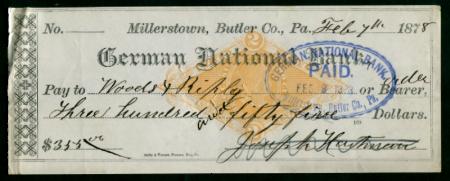 No. Millerstown, Butler Co., Pa. Feb 7th 1878
German National Bank
GERMAN NATIONAL BANK
PAID.
FEB 1878
Butler Co., Pa.
Pay to Woods & Ripley or Bearer, order
Three hundred and fifty five Dollars.
$355 00/100
Joseph